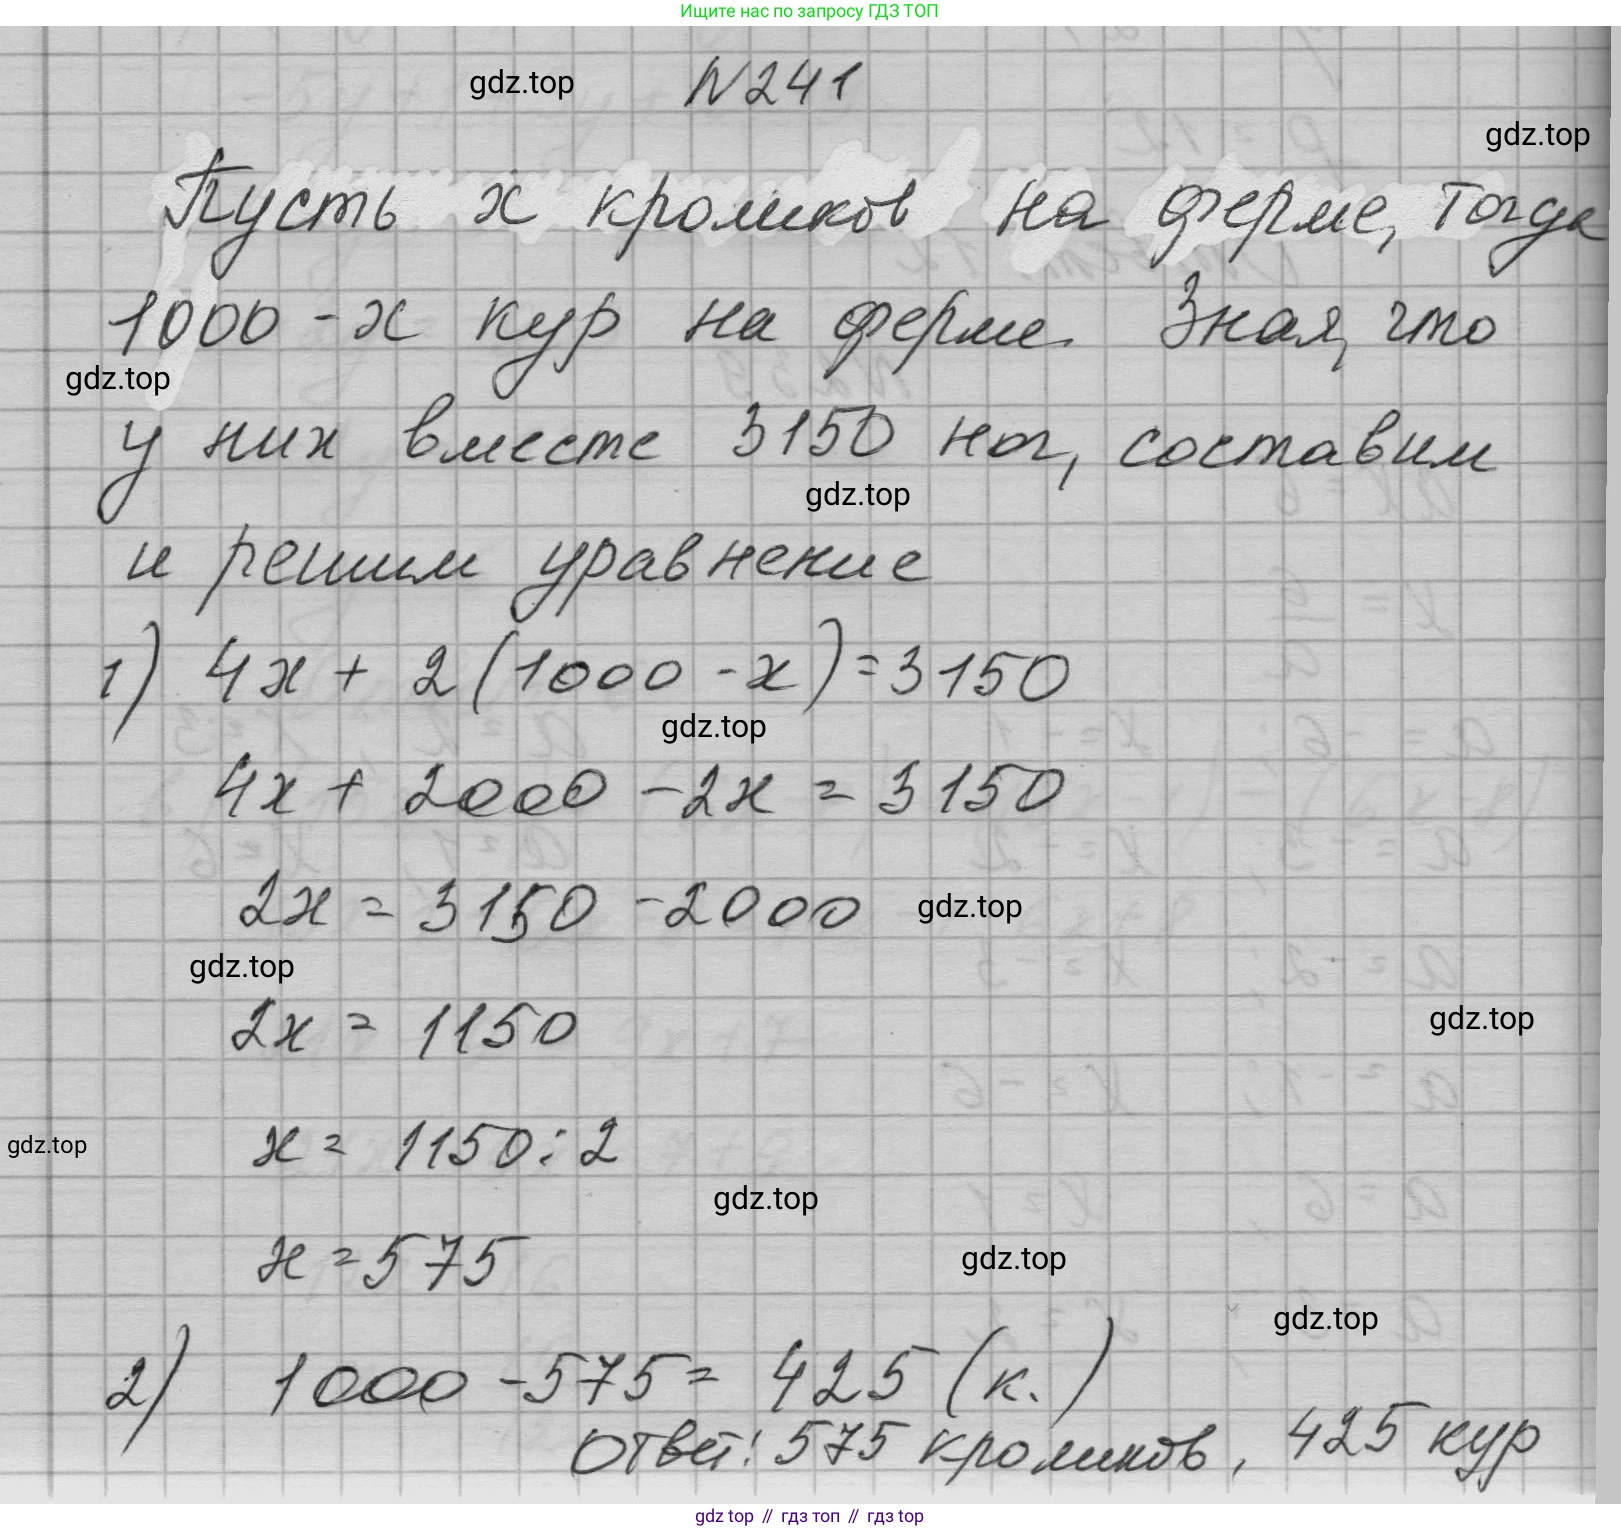 Ищите нас по запросу ГДЗ ТОП
gdz.top
N 241
gdz.top
Пусть x кроликов на ферме, тогда
1000 - x кур на ферме. Зная, что
gdz.top
у них вместе 3150 ног, составим
gdz.top
и решим уравнение
1) 4x + 2(1000 - x) = 3150
gdz.top
4x + 2000 - 2x = 3150
2x = 3150 - 2000
gdz.top
gdz.top
2x = 1150
gdz.top
x = 1150 : 2
gdz.top
gdz.top
x = 575
gdz.top
gdz.top
2) 1000 - 575 = 425 (к.)
Ответ: 575 кроликов, 425 кур
gdz top // гдз топ // gdz top